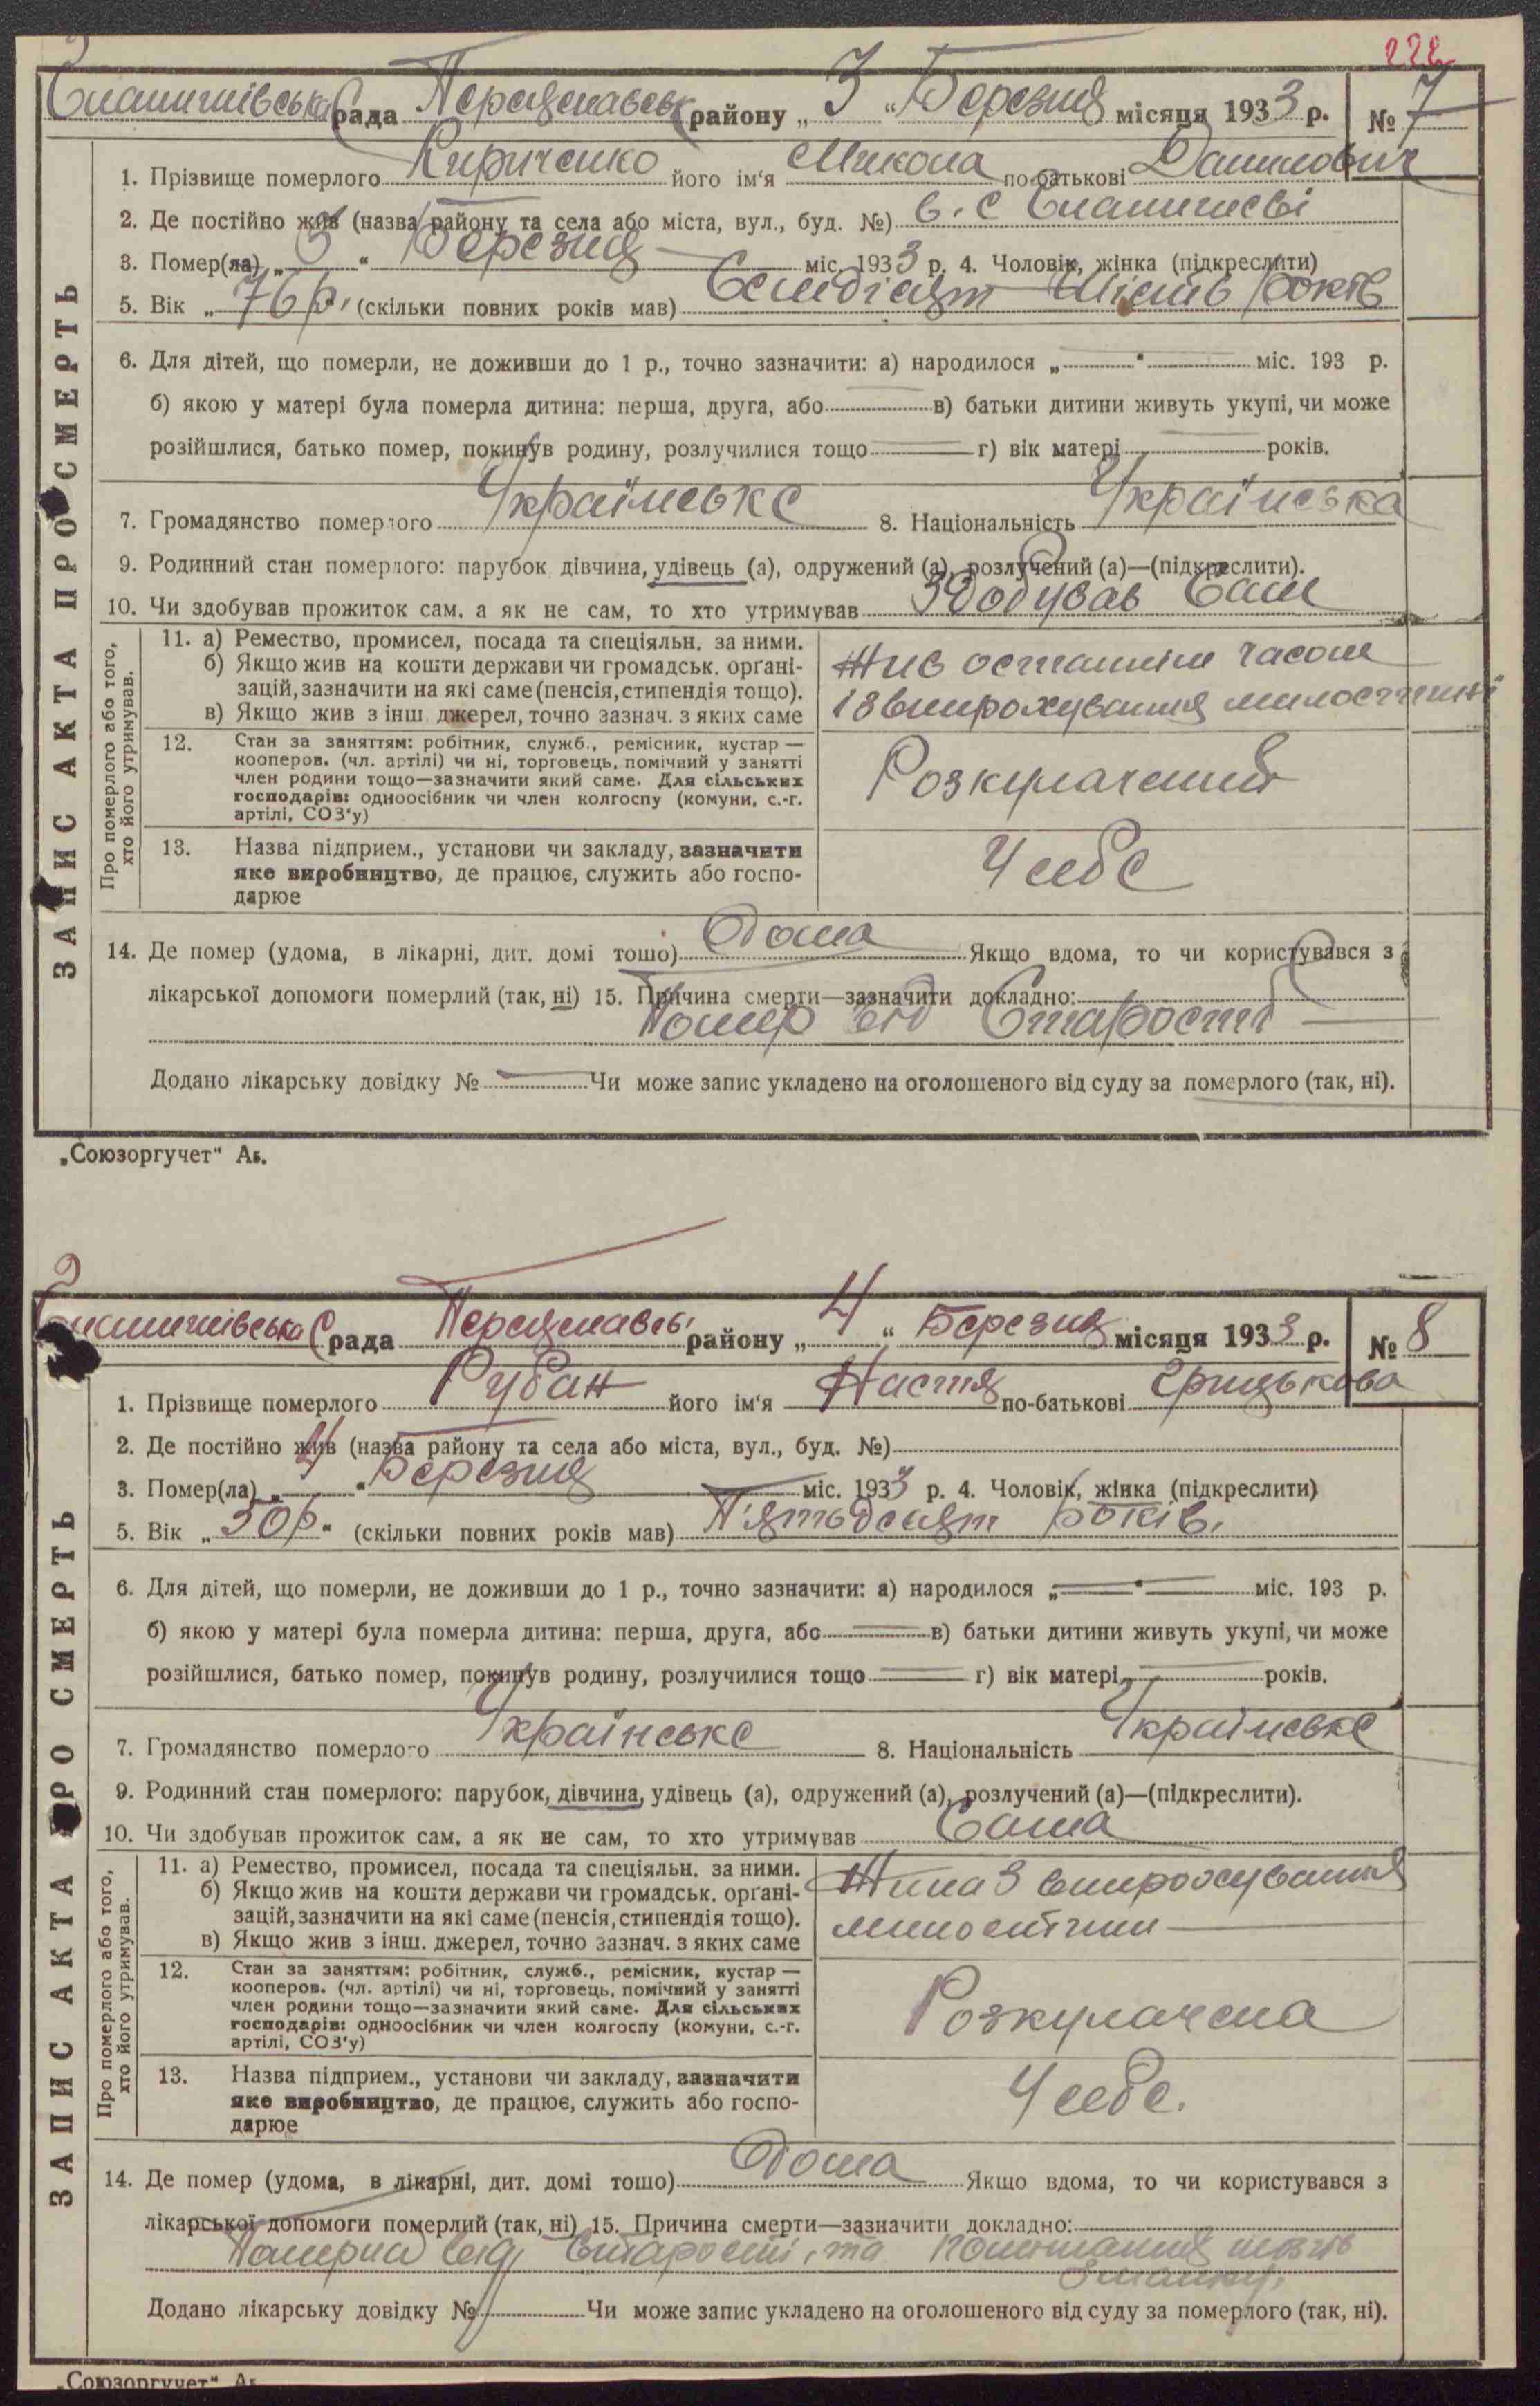 222
Спанишківська рада Переяславськ району „ 3 “ Березня місяця 1933 р. № 7
1. Прізвище померлого Кириченко його ім‘я Микола по-батькові Данилович
2. Де постійно жив (назва району та села або міста, вул., буд. №) в. с
3. Помер(ла) „ 3 “ Березня міс. 1933 р. 4. Чоловік, жінка (підкреслити)
5. Вік „ 76 р. “ (скільки повних років мав) Семдісят шість років
6. Для дітей, що померли, не доживши до 1 р., точно зазначити: а) народилося „ “ міс. 193 р.
б) якою у матері була померла дитина: перша, друга, або в) батьки дитини живуть укупі, чи може
розійшлися, батько помер, покинув родину, розлучилися тощо г) вік матері років.
7. Громадянство померлого Українське 8. Національність Українська
9. Родинний стан померлого: парубок, дівчина, удівець (а), одружений (а), розлучений (а)—(підкреслити).
10. Чи здобував прожиток сам, а як не сам, то хто утримував Здобував Сам
11. а) Ремество, промисел, посада та спеціяльн. за ними.
б) Якщо жив на кошти держави чи громадськ. орґані-
зацій, зазначити на які саме (пенсія, стипендія тощо).
в) Якщо жив з інш. джерел, точно зазнач. з яких саме
Жив останнім часом
із випрохування милостині
12. Стан за заняттям: робітник, служб., ремісник, кустар —
кооперов. (чл. артілі) чи ні, торговець, помічний у занятті
член родини тощо—зазначити який саме. Для сільських
господарів: одноосібник чи член колгоспу (комуни, с.-г.
артілі, СОЗ‘у)
Розкулачений
13. Назва підприєм., установи чи закладу, зазначити
яке виробництво, де працює, служить або госпо-
дарює
У себе
Про померлого або того,
хто його утримував.
14. Де помер (удома, в лікарні, дит. домі тощо) Дома Якщо вдома, то чи користувався з
лікарської допомоги померлий (так, ні) 15. Причина смерти—зазначити докладно:
Помер від Старості
Додано лікарську довідку № Чи може запис укладено на оголошеного від суду за померлого (так, ні).
ЗАПИС АКТА ПРО СМЕРТЬ
„Союзоргучет“
Спанишківська рада Переяславсь. району „ 4 “ Березня місяця 1933 р. № 8
1. Прізвище померлого Рубан його ім‘я Настя по-батькові Грицькова
2. Де постійно жив (назва району та села або міста, вул., буд. №)
3. Помер(ла) „ 4 “ Березня міс. 1933 р. 4. Чоловік, жінка (підкреслити)
5. Вік „ 50 р. “ (скільки повних років мав) П'ятьдсят років.
6. Для дітей, що померли, не доживши до 1 р., точно зазначити: а) народилося „ “ міс. 193 р.
б) якою у матері була померла дитина: перша, друга, або в) батьки дитини живуть укупі, чи може
розійшлися, батько помер, покинув родину, розлучилися тощо г) вік матері років.
7. Громадянство померлого Українське 8. Національність Українське
9. Родинний стан померлого: парубок, дівчина, удівець (а), одружений (а), розлучений (а)—(підкреслити).
10. Чи здобував прожиток сам, а як не сам, то хто утримував Сама
11. а) Ремество, промисел, посада та спеціяльн. за ними.
б) Якщо жив на кошти держави чи громадськ. орґані-
зацій, зазначити на які саме (пенсія, стипендія тощо).
в) Якщо жив з інш. джерел, точно зазнач. з яких саме
Жила З випрохування
милостини
12. Стан за заняттям: робітник, служб., ремісник, кустар —
кооперов. (чл. артілі) чи ні, торговець, помічний у занятті
член родини тощо—зазначити який саме. Для сільських
господарів: одноосібник чи член колгоспу (комуни, с.-г.
артілі, СОЗ‘у)
Розкулачена
13. Назва підприєм., установи чи закладу, зазначити
яке виробництво, де працює, служить або госпо-
дарює
У себе.
Про померлого або того,
хто його утримував.
14. Де помер (удома, в лікарні, дит. домі тощо) Дома Якщо вдома, то чи користувався з
лікарської допомоги померлий (так, ні) 15. Причина смерти—зазначити докладно:
Померла від Старости, та
Додано лікарську довідку № Чи може запис укладено на оголошеного від суду за померлого (так, ні).
ЗАПИС АКТА ПРО СМЕРТЬ
„Союзоргучет“